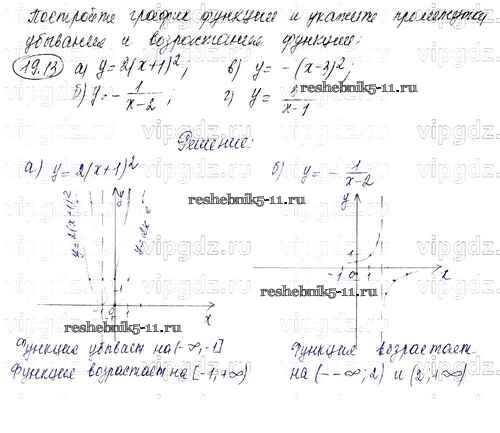 Постройте график функции и укажите промежутки
убывания и возрастания функции:
19.13 а) y = 2(x+1)²; в) y = -(x-3)²;
б) y = - 1/(x-2); г) y = 1/(x-1)
reshebnik5-11.ru
Решение:
а) y = 2(x+1)² б) y = - 1/(x-2)
reshebnik5-11.ru
y y
y=2(x+1)²
-1 0 1 x
-1 0 1 x
reshebnik5-11.ru
reshebnik5-11.ru
Функция убывает на (-∞; -1] Функция возрастает
Функция возрастает на [-1; +∞) на (-∞; 2) и (2; +∞)
vipgdz.ru